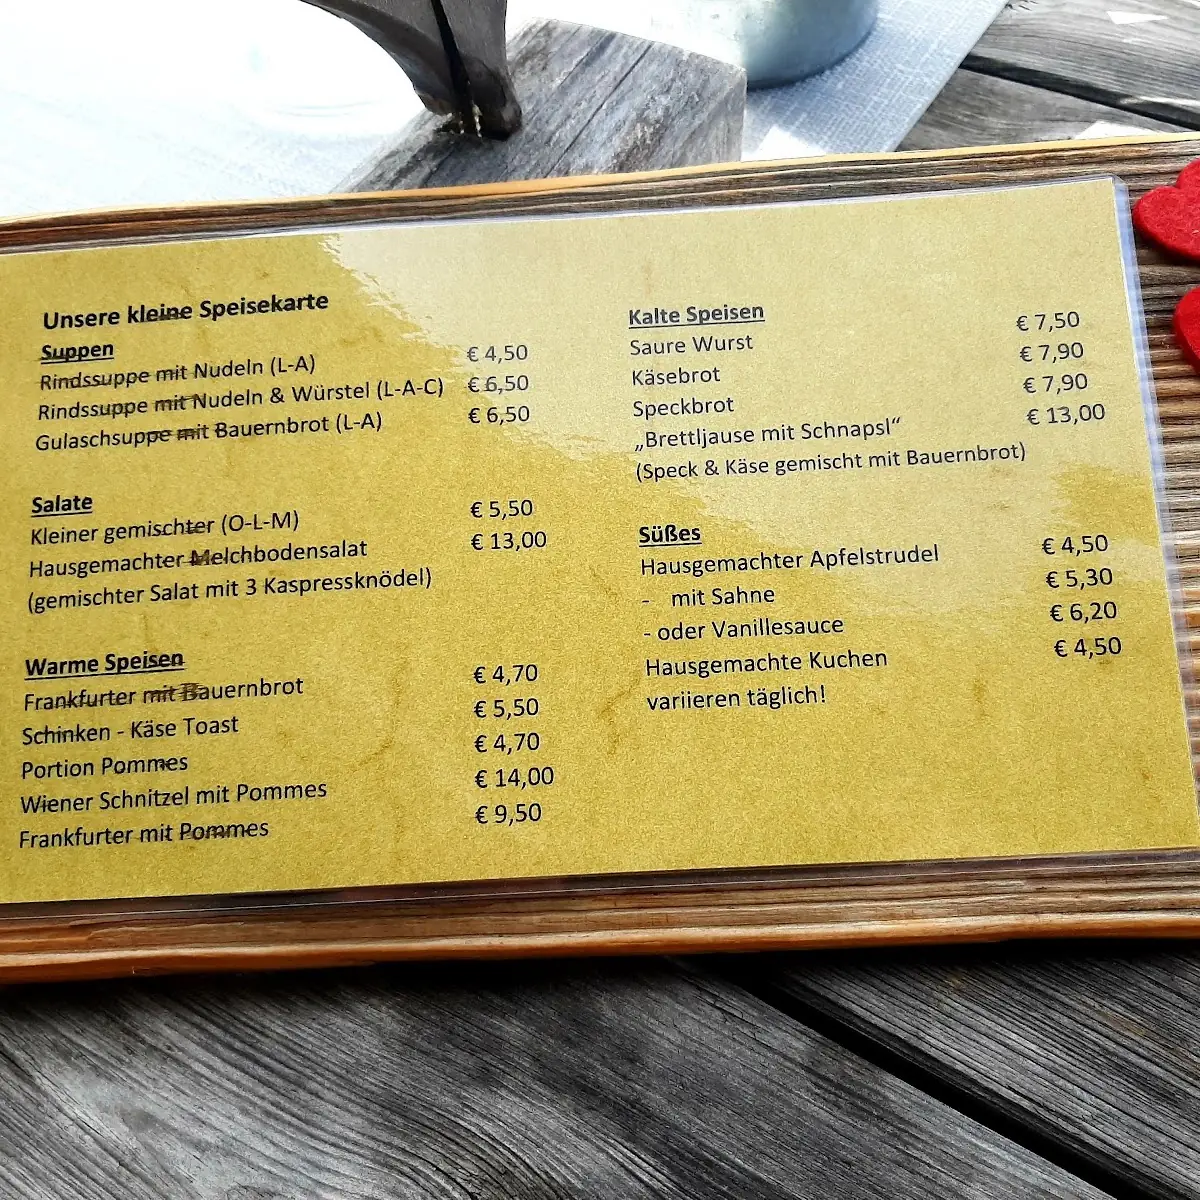 Unsere kleine Speisekarte
Suppen
Rindssuppe mit Nudeln (L-A) € 4,50
Rindssuppe mit Nudeln & Würstel (L-A-C) € 6,50
Gulaschsuppe mit Bauernbrot (L-A) € 6,50
Salate
Kleiner gemischter (O-L-M) € 5,50
Hausgemachter Melchbodensalat € 13,00
(gemischter Salat mit 3 Kaspressknödel)
Warme Speisen
Frankfurter mit Bauernbrot € 4,70
Schinken - Käse Toast € 5,50
Portion Pommes € 4,70
Wiener Schnitzel mit Pommes € 14,00
Frankfurter mit Pommes € 9,50
Kalte Speisen
Saure Wurst € 7,50
Käsebrot € 7,90
Speckbrot € 7,90
„Brettljause mit Schnapsl“ € 13,00
(Speck & Käse gemischt mit Bauernbrot)
Süßes
Hausgemachter Apfelstrudel € 4,50
- mit Sahne € 5,30
- oder Vanillesauce € 6,20
Hausgemachte Kuchen € 4,50
variieren täglich!